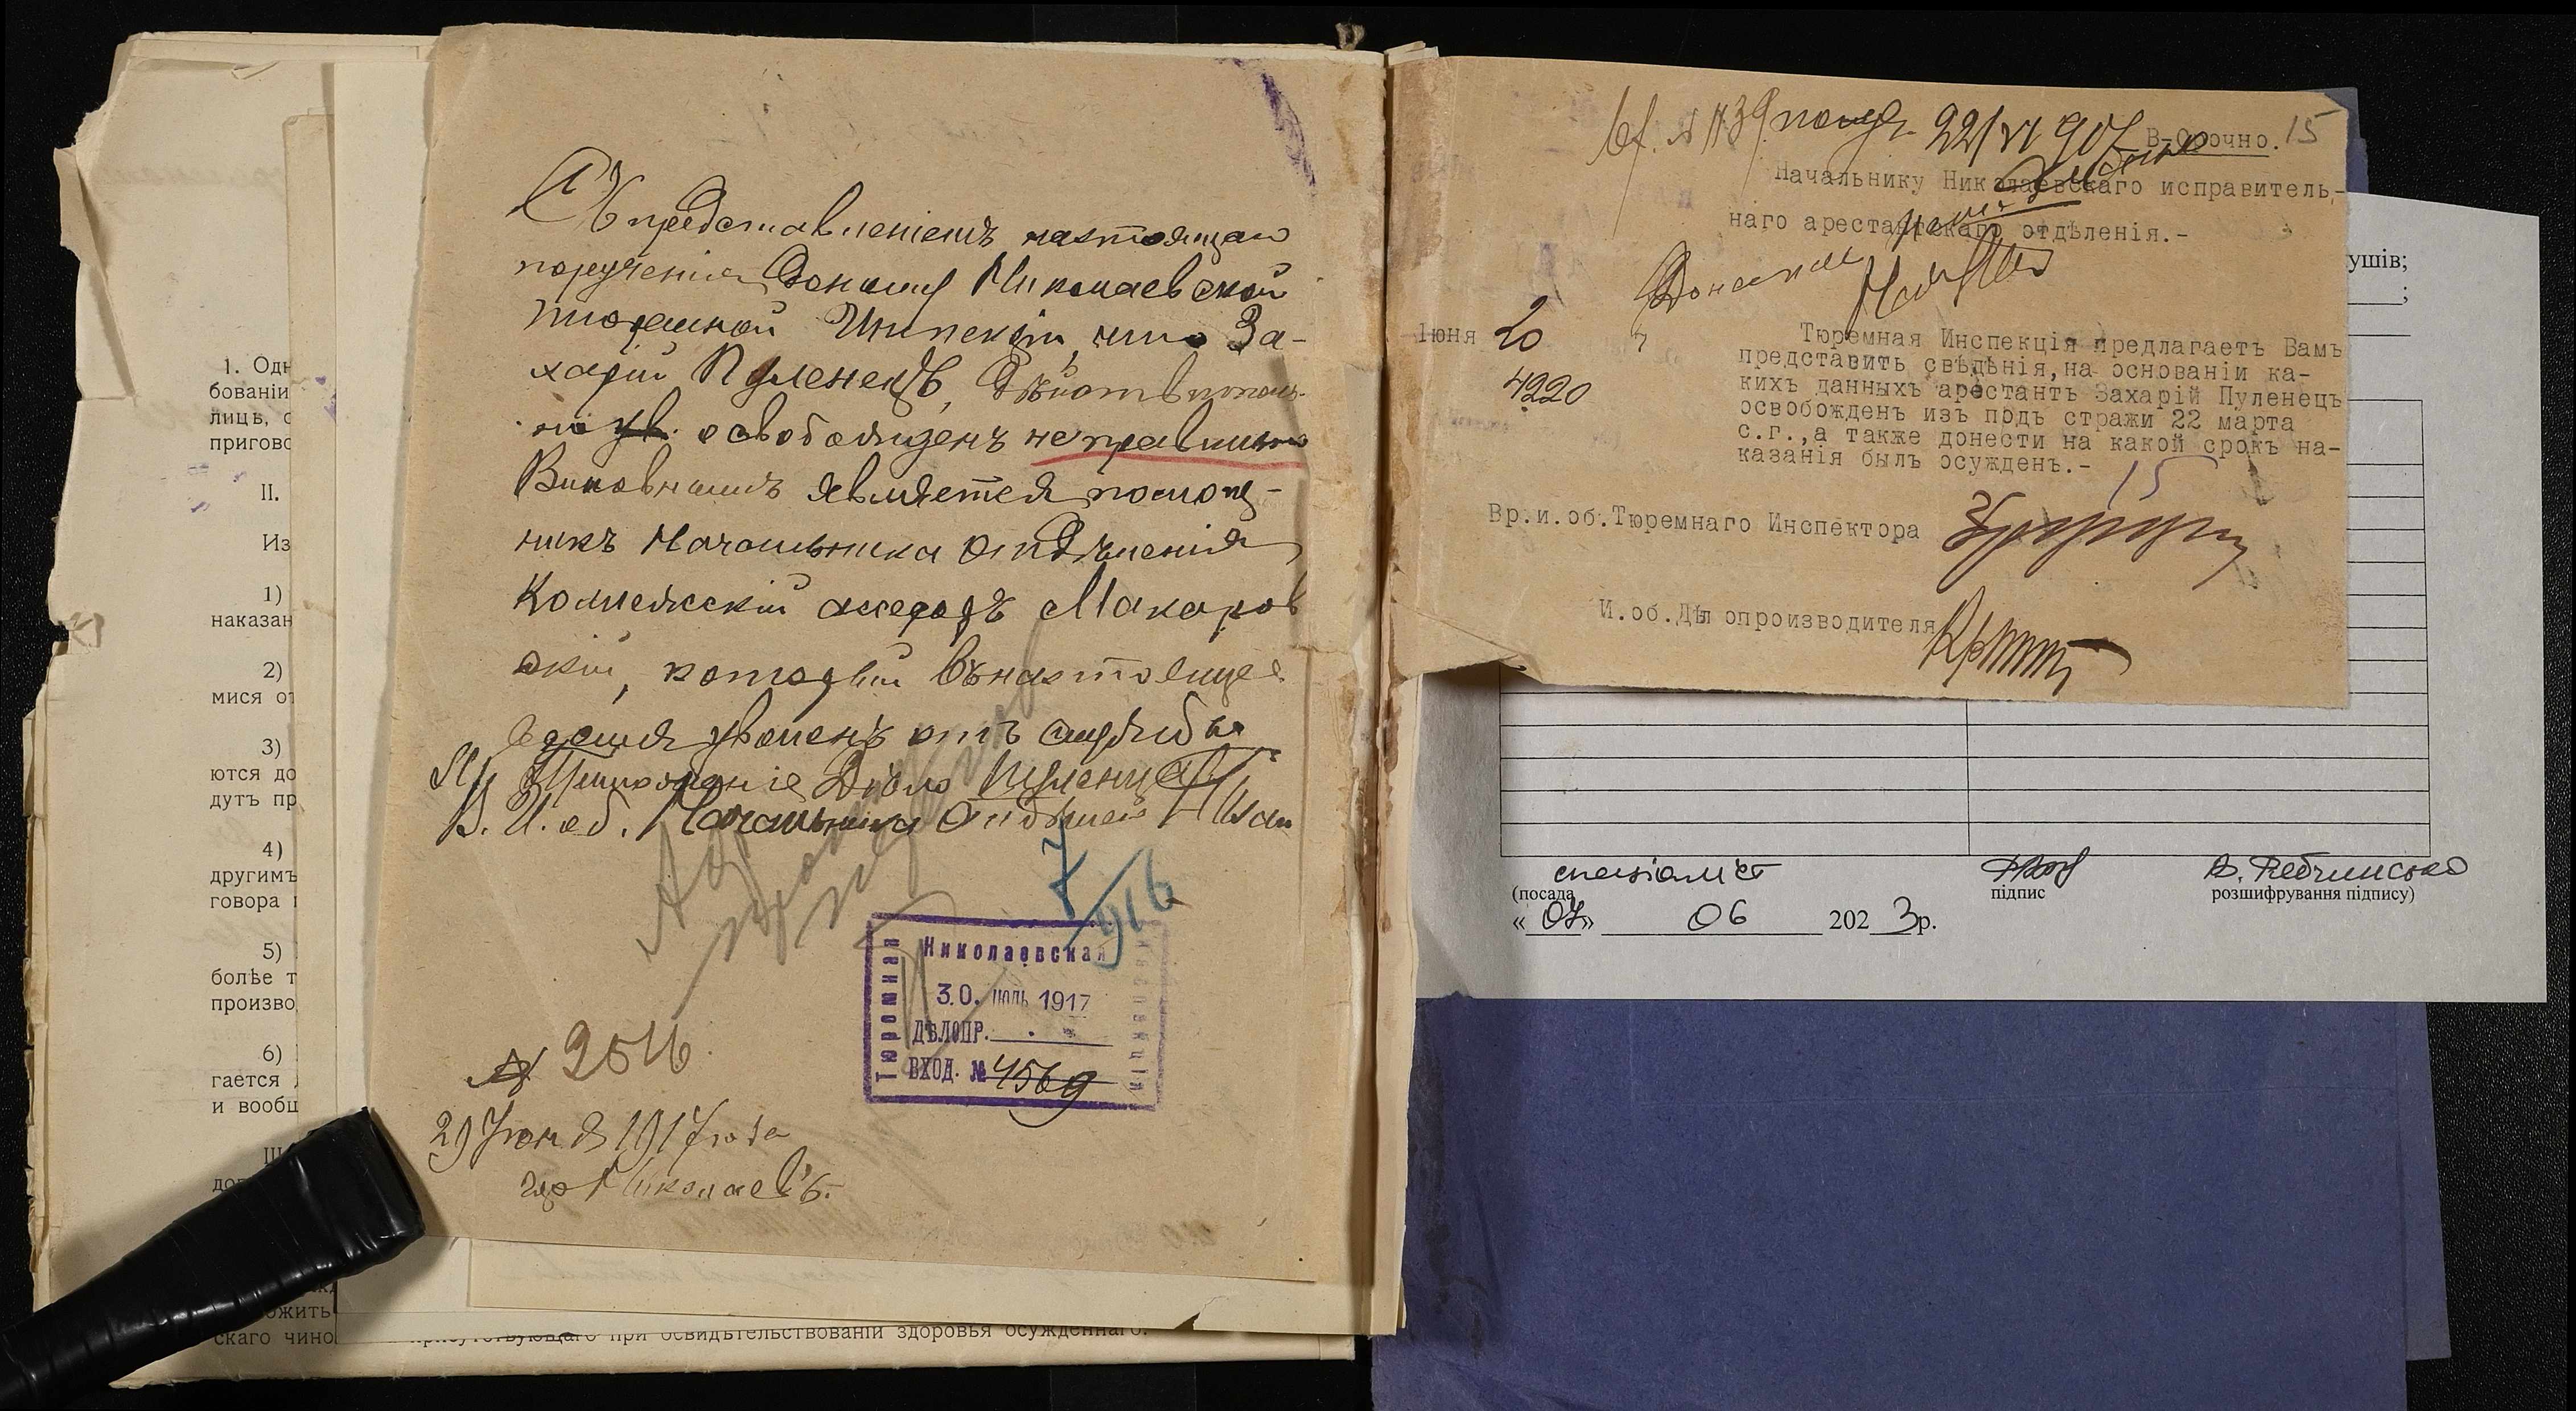 1. Одн
бованіи
лицъ, с
пригово
II.
Из
1)
наказан
2)
мися от
3)
ются до
дутъ пр
4)
другимъ
говора
5)
болѣе т
произво
6)
гается
и вообщ
III
дог
ожить
скаго чино
присутствующаго при освидѣтельствованіи здоровья осужденнаго.
Съ представленіемъ настоящаго
порученія доношу Николаевской
тюремной Инспекціи, что За-
харій Пуленецъ, дѣйствитель-
но ув. освобожденъ неправильно
Виновнымъ является помощ-
никъ Начальника отдѣленія
Коллежскій ассесоръ Макаров
скій, который въ настоящее
время уволенъ отъ службы
Приложеніе Дѣло Пуленца
В. И. об. Начальника Отдѣленія
7/916
Николаевская
Тюремная
Инспекція
30. июнь 1917
ДѢЛОПР.
ВХОД. № 4569
№ 2516.
29 Іюня 1917 года
гор Николаевъ.
22/VI 907
В-Срочно. 15
Начальнику Николаевскаго исправитель-
наго арестантскаго отдѣленія.-
Іюня 20
4220
Тюремная Инспекція предлагаетъ Вамъ
представить свѣдѣнія, на основаніи ка-
кихъ данныхъ арестантъ Захарій Пуленецъ
освобожденъ изъ подъ стражи 22 марта
с.г., а также донести на какой срокъ на-
казанія былъ осужденъ.-
15
Вр.и.об.Тюремнаго Инспектора
И.об.Дѣлопроизводителя
ушів;
;
спеціаліст
(посада
підпис
розшифрування підпису)
«07» 06 2023р.